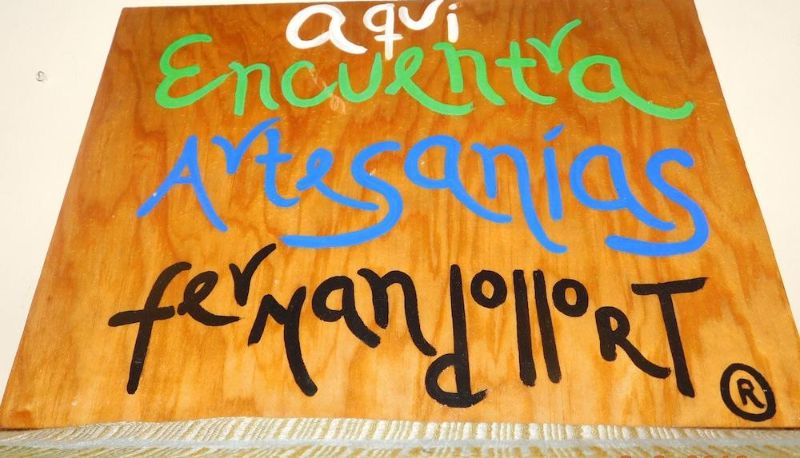 aquí
Encuentra
Artesanías
fernandollORT ®